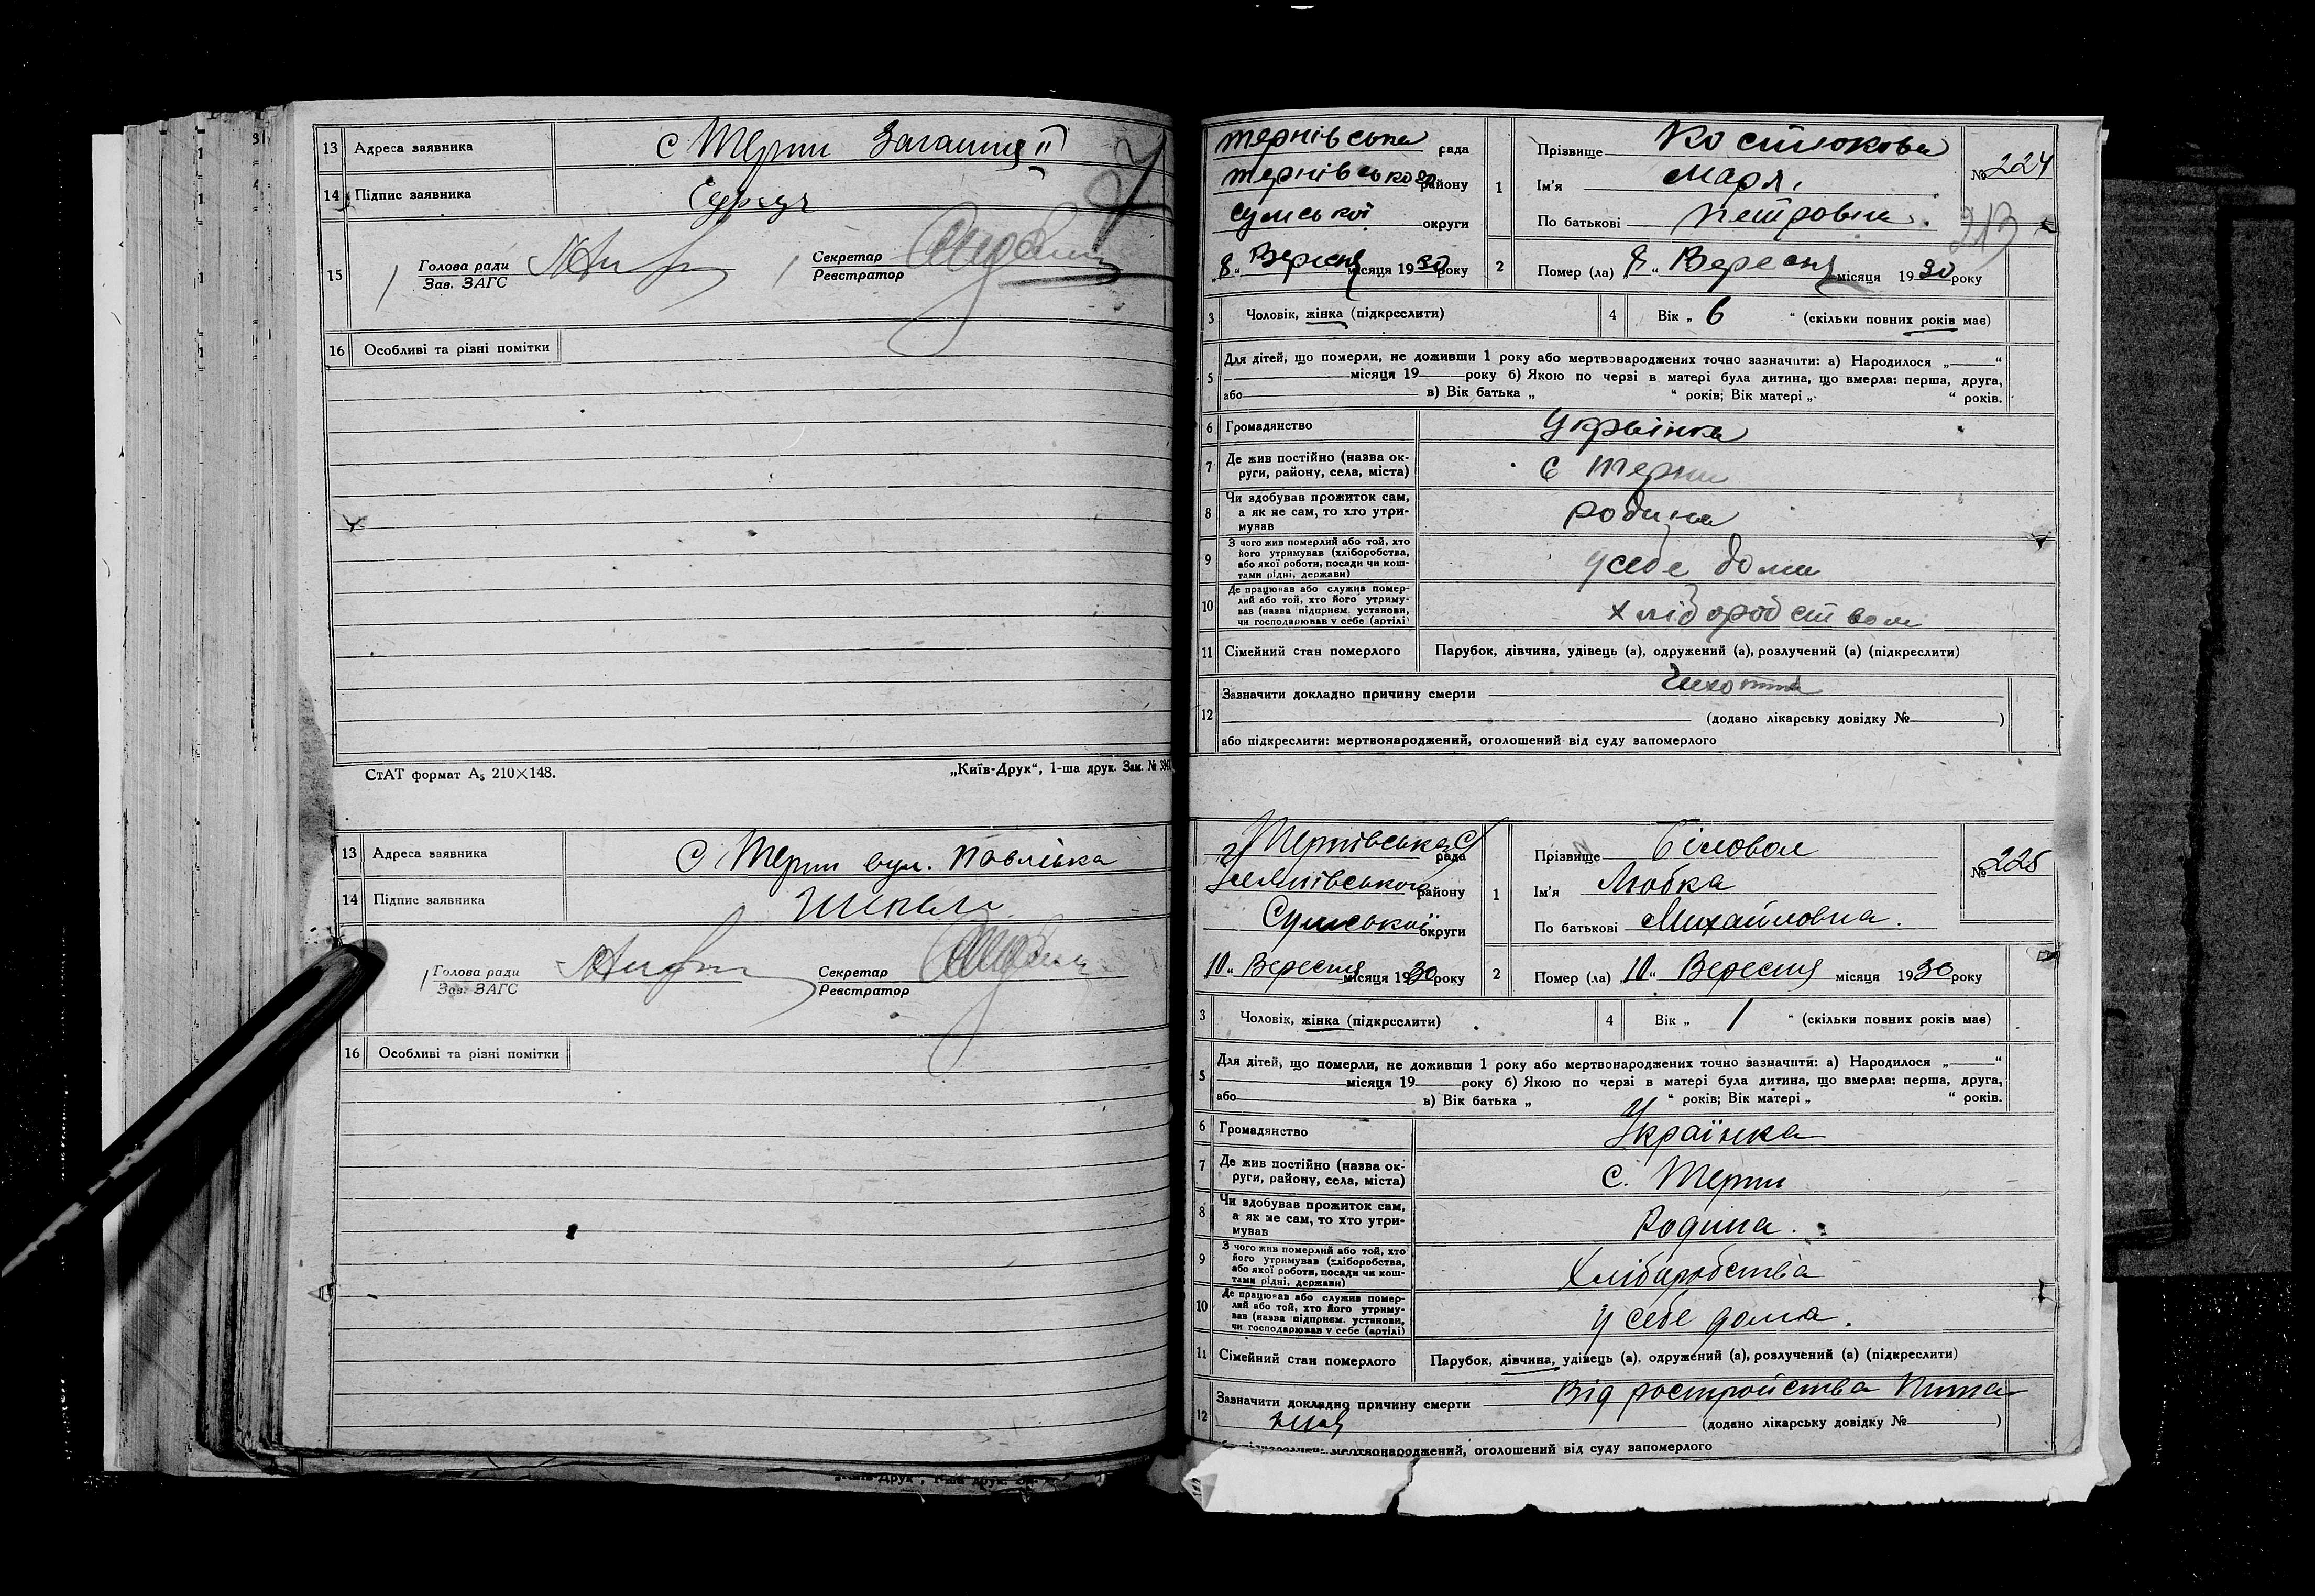 13 Адреса заявника с Терни
14 Підпис заявника
15 Голова ради Секретар
Зав. ЗАГС Реєстратор
16 Особливі та різні помітки
СтАТ формат А5 210×148. „Київ-Друк“, 1-ша друк. Зам. №
13 Адреса заявника с Терни вул. Павлівка
14 Підпис заявника
Голова ради Секретар
Зав. ЗАГС Реєстратор
16 Особливі та різні помітки
„Київ-Друк“, 1-ша друк.
тернівська рада
тернівського району
сумської округи
„8“ Вересня місяця 1930 року
1 Прізвище Костюкова
Ім'я Маря
По батькові Петровна
№ 224
213
2 Помер (ла) 8 „ Вересня місяця 1930 року
3 Чоловік, жінка (підкреслити) 4 Вік „ 6 “ (скільки повних років має)
5 Для дітей, що померли, не доживши 1 року або мертвонароджених точно зазначити: а) Народилося „ “
місяця 19 року б) Якою по черзі в матері була дитина, що вмерла: перша, друга,
або в) Вік батька „ “ років; Вік матері „ “ років.
6 Громадянство Українка
7 Де жив постійно (назва ок-
руги, району, села, міста) с Терни
8 Чи здобував прожиток сам,
а як не сам, то хто утри-
мував родина
9 З чого жив померлий або той, хто
його утримував (хліборобства,
або якої роботи, посади чи кош-
тами рідні, держави) у себе дома
10 Де працював або служив помер-
лий або той, хто його утриму-
вав (назва підприєм. установи,
чи господарював у себе (артілі) хліборобством
11 Сімейний стан померлого Парубок, дівчина, удівець (а), одружений (а), розлучений (а) (підкреслити)
12 Зазначити докладно причину смерти
(додано лікарську довідку № )
або підкреслити: мертвонароджений, оголошений від суду запомерлого
Тернівська с/рада
району
Сумської округи
10 „ Вересня місяця 1930 року
1 Прізвище Біловол
Ім'я Любка
По батькові Михайловна.
№ 225
2 Помер (ла) „10 „ Вересня місяця 1930 року
3 Чоловік, жінка (підкреслити) 4 Вік „ 1 “ (скільки повних років має)
5 Для дітей, що померли, не доживши 1 року або мертвонароджених точно зазначити: а) Народилося „ “
місяця 19 року б) Якою по черзі в матері була дитина, що вмерла: перша, друга,
або в) Вік батька „ “ років; Вік матері „ “ років.
6 Громадянство Українка
7 Де жив постійно (назва ок-
руги, району, села, міста) с. Терни
8 Чи здобував прожиток сам,
а як не сам, то хто утри-
мував Родина.
9 З чого жив померлий або той, хто
його утримував (хліборобства,
або якої роботи, посади чи кош-
тами рідні, держави) Хліборобства
10 Де працював або служив помер-
лий або той, хто його утриму-
вав (назва підприєм. установи,
чи господарював у себе (артілі) у себе дома.
11 Сімейний стан померлого Парубок, дівчина, удівець (а), одружений (а), розлучений (а) (підкреслити)
12 Зазначити докладно причину смерти Від ростройства
(додано лікарську довідку № )
мертвонароджений, оголошений від суду запомерлого